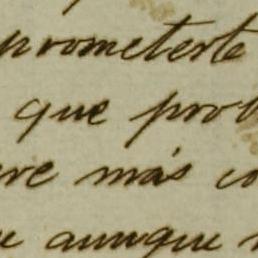 prometerte
que prob
ere más co
u aunque